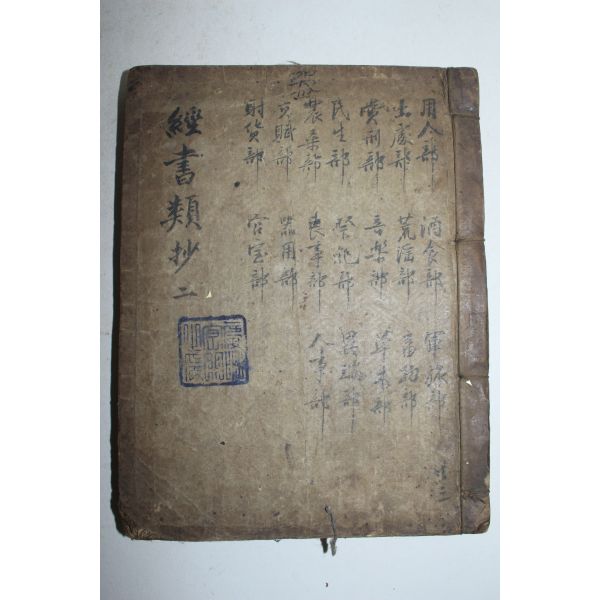 用人部 酒食部 軍旅部
共三
出處部 荒淫部
賞刑部 音樂部 草木部
民生部 祭祀部 異端部
農桑部 喪事部 人事部
貢賦部 器用部
財貨部 宮室部
經書類抄 二